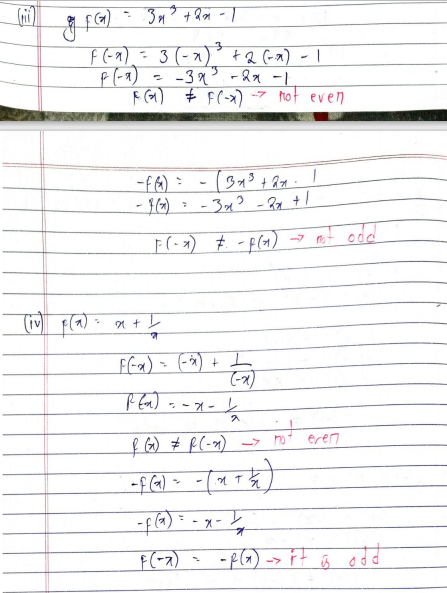 (iii) g f(x) = 3x³ + 2x - 1
f(-x) = 3(-x)³ + 2(-x) - 1
f(-x) = -3x³ - 2x - 1
f(x) ≠ f(-x) → not even
-f(x) = -(3x³ + 2x - 1
-f(x) = -3x³ - 2x + 1
f(-x) ≠ -f(x) → not odd
(iv) f(x) = x + 1/x
f(-x) = (-x) + 1/(-x)
f(-x) = -x - 1/x
f(x) ≠ f(-x) → not even
-f(x) = -(x + 1/x)
-f(x) = -x - 1/x
f(-x) = -f(x) → it is odd